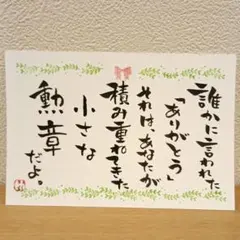 誰かに言われた
「ありがとう」
それは、あなたが
積み重ねてきた
小さな
勲章
だよ。